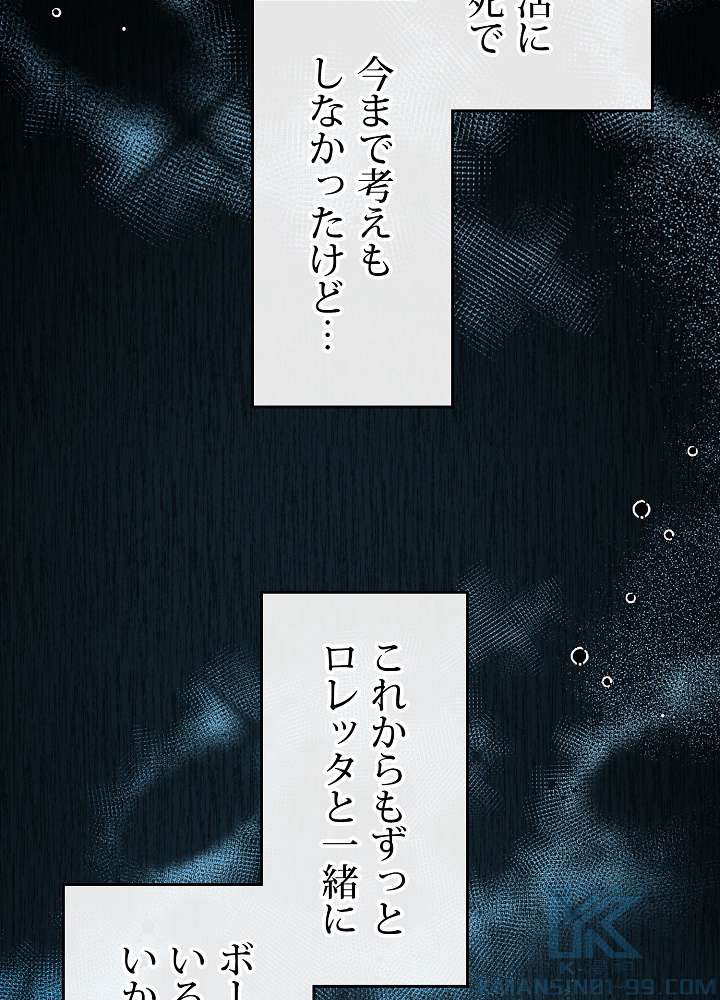 活に
死で
今まで考えも
しなかったけど…
これからもずっと
ロレッタと一緒に
ボー
いる
いか
KOMANSIN01-99.COM